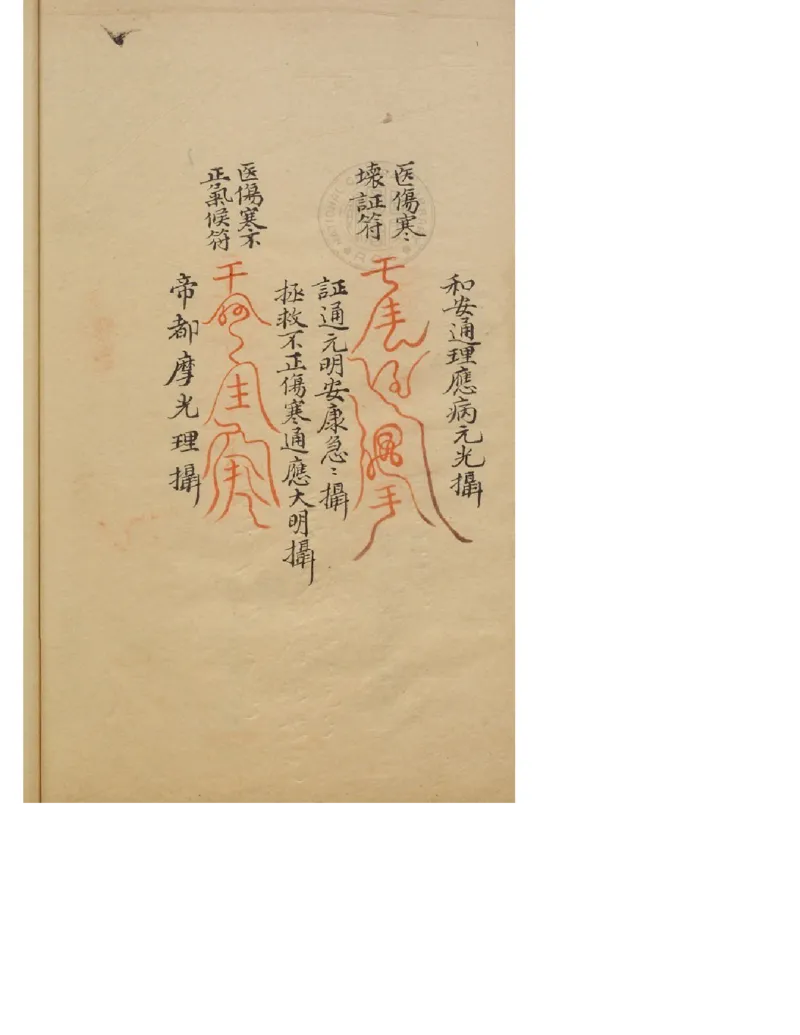 医傷寒
壞証符
和安通理應病元光攝
証通元明安康急〻攝
医傷寒不
正氣候符
拯救不正傷寒通應大明攝
帝都摩光理攝